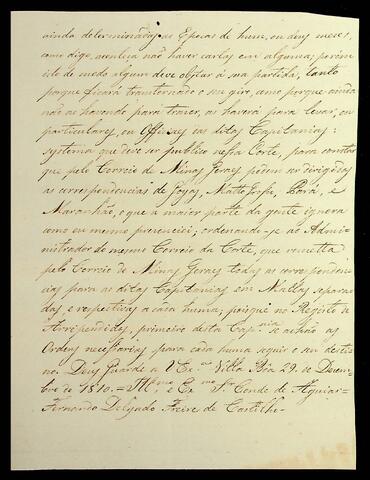 ainda determinadas as Epocas de hum, ou dous mezes,
como digo, aconteça não haver cartas em algumas; porém
isto de modo algum deve obstar á sua partida, tanto
porque ficará transtornado o seu giro, como porque ainda
não as havendo para trazer, as haverá para levar, ou
particulares, ou Officiaes ás ditas Capitanias:
systema que deve ser publico nessa Corte, para constar
que pelo Correio de Minas Geraes podem ser dirigidas
as correspondencias de Goyaz, Matto Grosso, Pará, e
Maranhão, o que a maior parte da gente ignora
como eu mesmo prezenciei, ordenando-se ao Admi-
nistrador do mesmo Correio da Corte, que remetta
pelo Correio de Minas Geraes todas as correspondên-
cias para as ditas Capitanias em Mallas separa-
das e respectivas a cada huma, porisque no Registo de
Arrependidos, primeiro desta Cap.nia se achão as
Ordens necessarias para cada huma seguir o seu desti-
no. Deus Guarde a V. Ex.a Villa Boa 29 de Dezem-
bro de 1810. = Ill.mo e Ex.mo Sr. Conde de Aguiar =
Fernando Delgado Freire de Castilho -